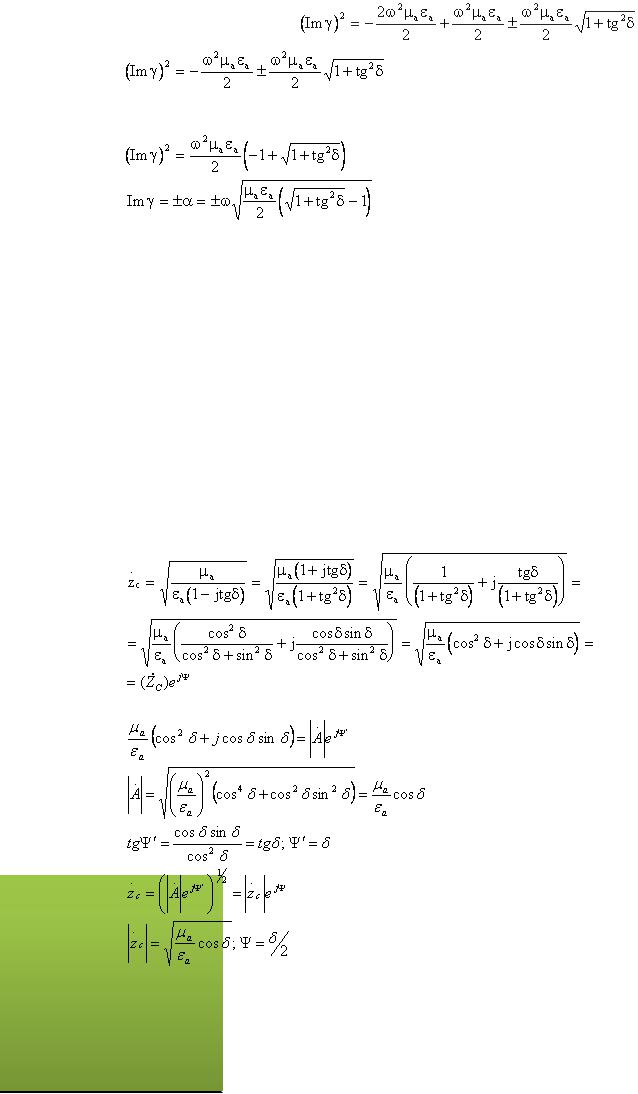 (Im γ)² = −2ω²μₐεₐ/2 + ω²μₐεₐ/2 ± ω²μₐεₐ/2 √(1+tg²δ)
(Im γ)² = −ω²μₐεₐ/2 ± ω²μₐεₐ/2 √(1+tg²δ)
(Im γ)² = ω²μₐεₐ/2 (−1+√(1+tg²δ))
Im γ = ±α = ±ω√(μₐεₐ/2 (√(1+tg²δ) − 1))
ż_c = √(μₐ/(εₐ(1−jtgδ))) = √(μₐ(1+jtgδ)/(εₐ(1+tg²δ))) = √(μₐ/εₐ (1/(1+tg²δ) + j tgδ/(1+tg²δ))) =
= √(μₐ/εₐ (cos²δ/(cos²δ+sin²δ) + j cosδsinδ/(cos²δ+sin²δ))) = √(μₐ/εₐ (cos²δ+jcosδsinδ)) =
= (Ż_C)e^{jΨ}
μₐ/εₐ (cos²δ+jcosδsinδ) = |Ȧ|e^{jΨ'}
|Ȧ| = √((μₐ/εₐ)²(cos⁴δ+cos²δsin²δ)) = μₐ/εₐ cosδ
tgΨ' = cosδsinδ/cos²δ = tgδ; Ψ' = δ
ż_c = (|Ȧ|e^{jΨ'})^{1/2} = |ż_c|e^{jΨ}
|ż_c| = √(μₐ/εₐ cosδ); Ψ = δ/2